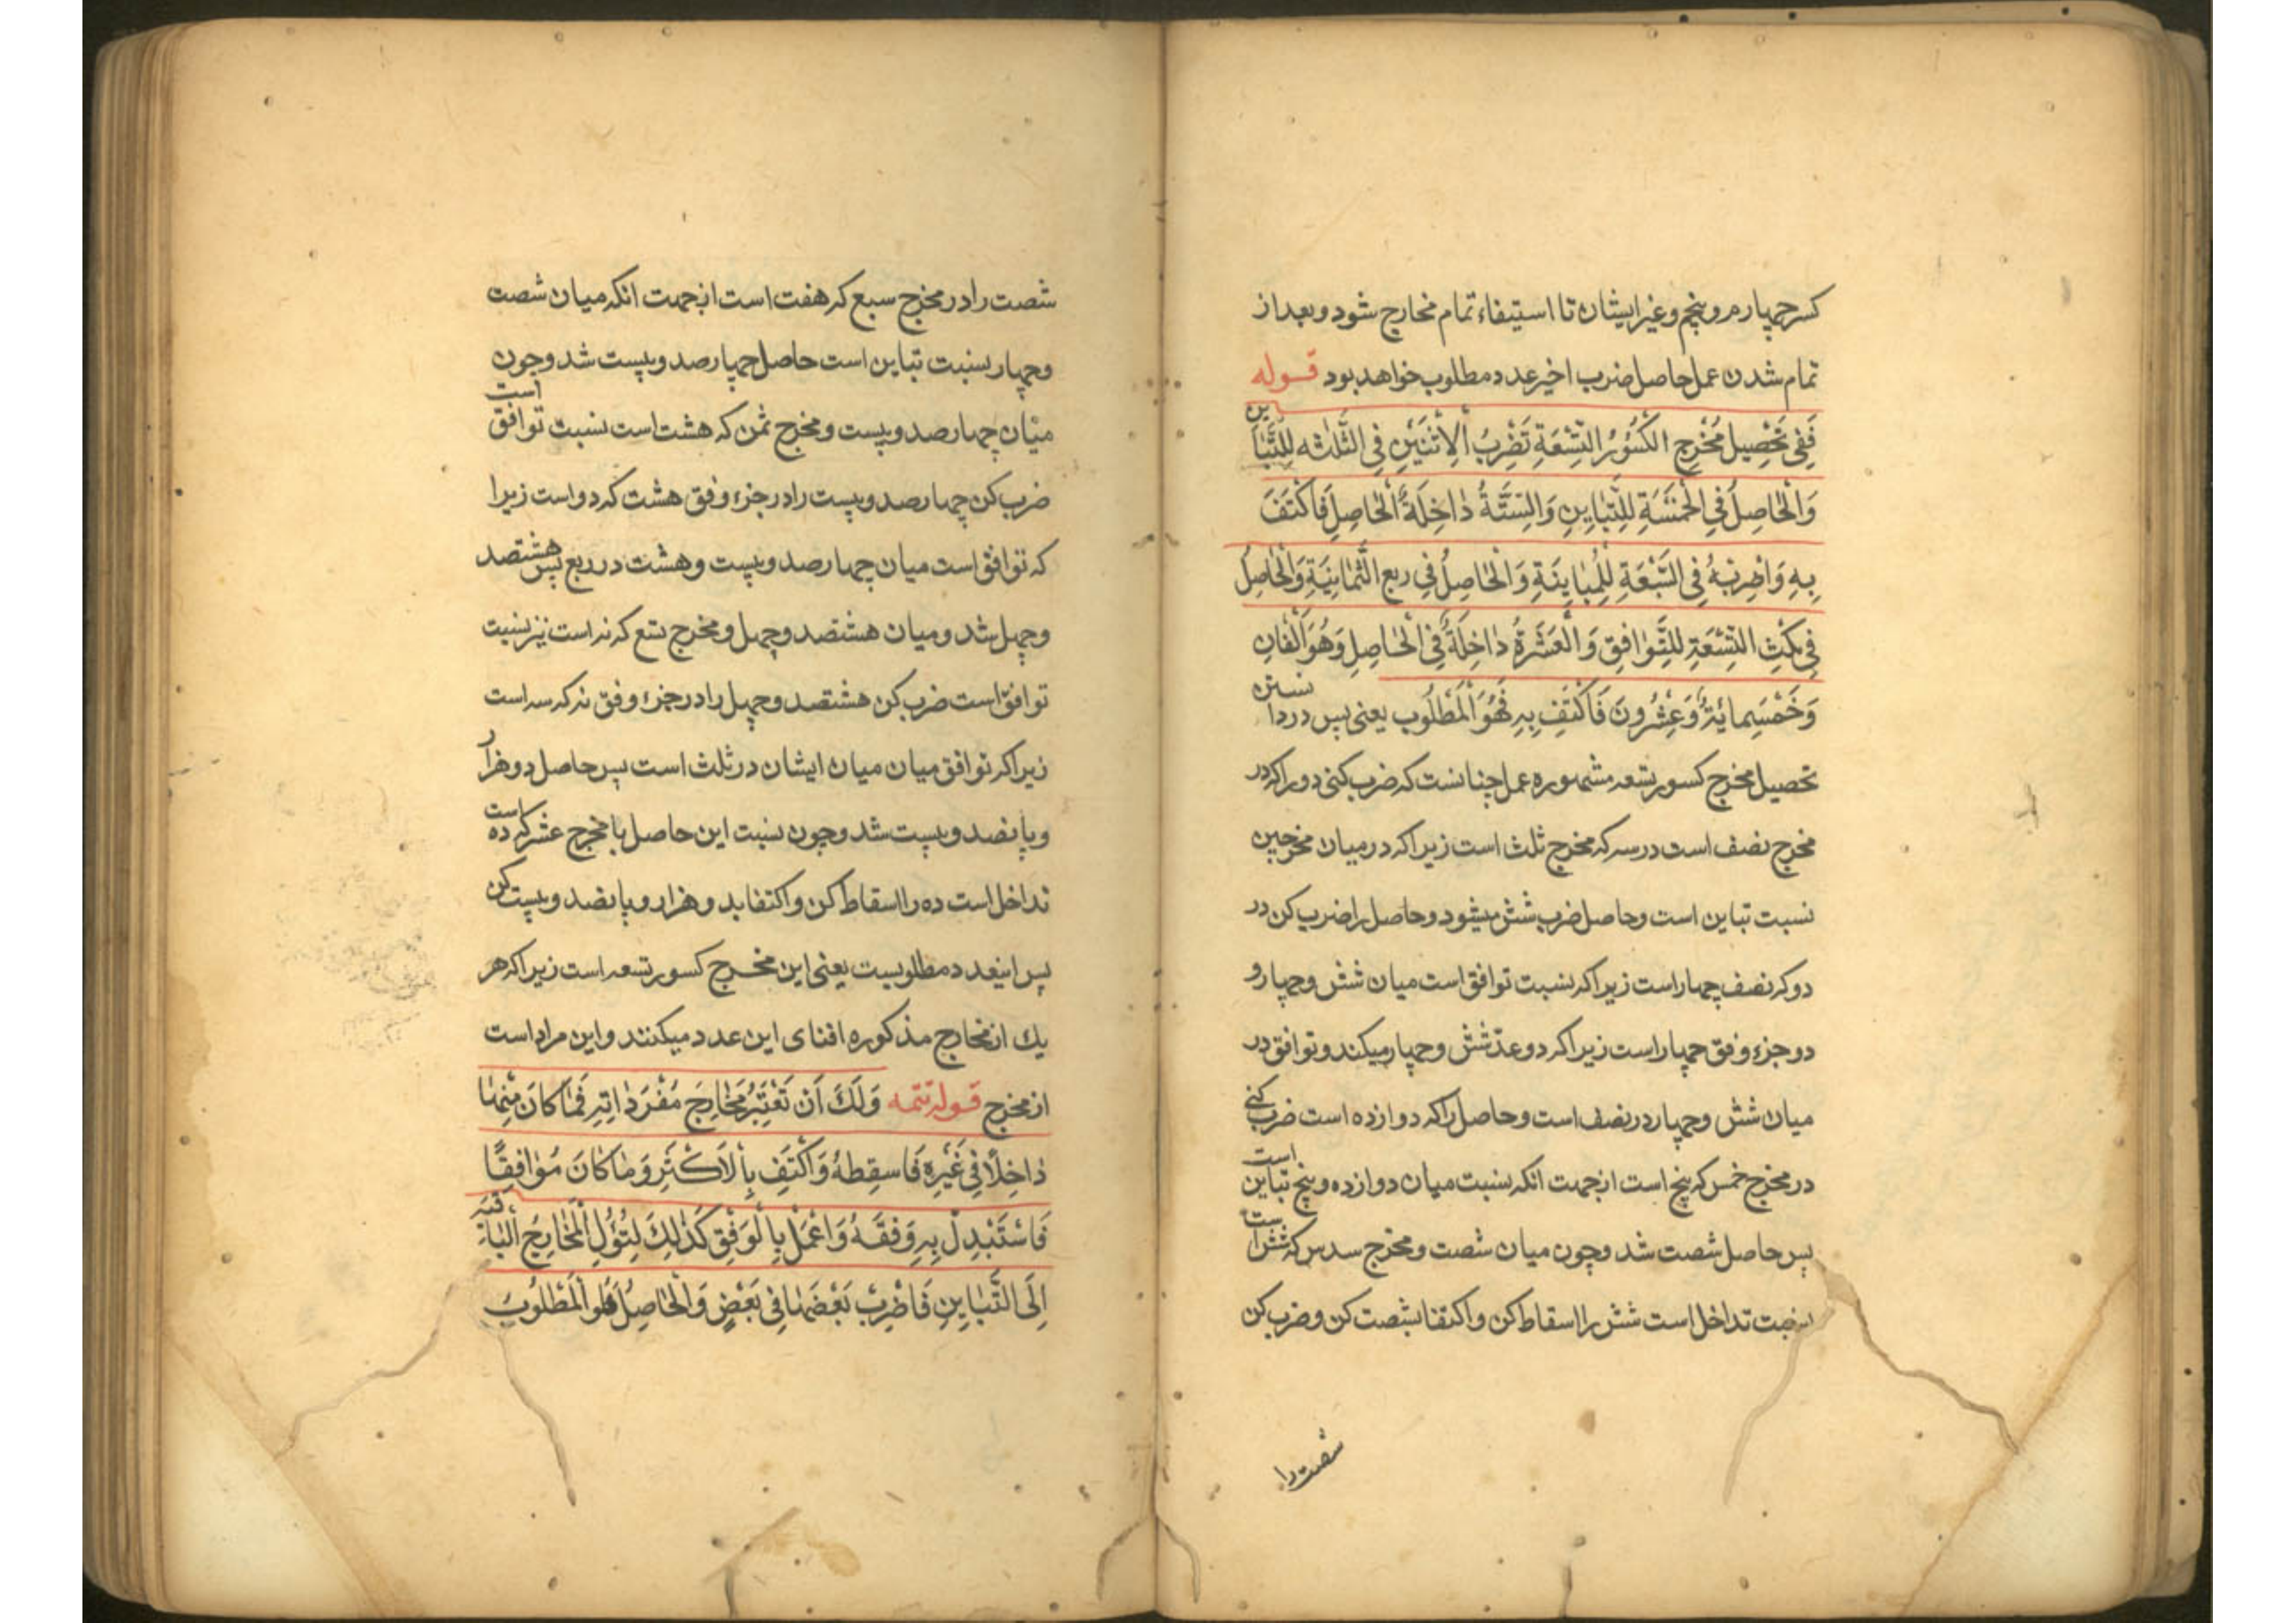 کسر چهارم و پنجم و غیر ایشان تا استیفاء تمام مخارج شود و بعد از
تمام شدن عمل حاصل ضرب اخیر عدد مطلوب خواهد بود قوله
فَفِی تَحْصِیلِ مُخْرِجِ الکُسُوُرِ التِّسْعَةِ تَضْرِبُ الاِثْنَیْنِ فِی الثَّلٰثه لِلتَّبٰاین
وَالْحٰاصِلَ فِی الْخَمْسَةِ لِلتَّبٰایِنِ وَالسِّتَّةُ دٰاخِلَةُ الْحٰاصِلِ فَاکْتَفَ
بِهِ وَاضْرِبْهُ فِی السَّبْعَةِ لِلْمُبٰایِنَةِ وَالْحٰاصِلُ فِی ربع الثَّمٰانِیَةِ وَالْحٰاصِلُ
فِی ثلثِ التِّسْعَةِ لِلتَّوٰافِقِ وَالْعَشَرَةُ دٰاخِلَةٌ فِی الْحٰاصِلِ وَهُوَ اَلْفٰانِ
وَخَمْسَمِائَةُ وَعِشْرُونَ فَاکْتَفِ بِهِ فَهُوَ الْمَطْلُوب یعنی پس در دانستن
تحصیل مخرج کسور تسعه مشهوره عمل چنانست که ضرب کنی دو را که در
مخرج نصف است در سه که مخرج ثلث است زیرا که در میان مخرجین
نسبت تباین است و حاصل ضرب شش میشود و حاصل را ضرب کن در
دو که نصف چهار است زیرا که نسبت توافق است میان شش و چهار و
دو جزء وفق چهار است زیرا که دو عدّ شش و چهار میکند و توافق در
میان شش و چهار در نصف است و حاصل را که دوازده است ضرب کنی
در مخرج خمس که پنج است از جهت انکه نسبت میان دوازده و پنج تباین است
پس حاصل شصت شد و چون میان شصت و مخرج سدس که شش است
نسبت تداخل است شش را اسقاط کن و اکتفا بشصت کن و ضرب کن
شصت را
شصت را در مخرج سبع که هفت است از جهت انکه میان شصت
و چهار نسبت تباین است حاصل چهارصد و بیست شد و چون
میان چهارصد و بیست و مخرج ثمن که هشت است نسبت توافق است
ضرب کن چهارصد و بیست را در جزء وفق هشت که دو است زیرا
که توافق است میان چهارصد و بیست و هشت در ربع پس هشتصد
و چهل شد و میان هشتصد و چهل و مخرج تسع که نه است نیز نسبت
توافق است ضرب کن هشتصد و چهل را در جزء وفق نه که سه است
زیرا که توافق میان میان ایشان در ثلث است پس حاصل دو هزار
و پانصد و بیست شد و چون نسبت این حاصل با مخرج عشر که ده است
تداخل است ده را اسقاط کن و اکتفا بدو هزار و پانصد و بیست کن
پس اینعدد مطلوبست یعنی این مخرج کسور تسعه است زیرا که هر
یك از مخارج مذکوره افنای این عدد میکنند و این مراد است
از مخرج قوله تتمه وَلَكَ اَن تَعْتَبِرَ مَخٰارِجَ مُفْرَدٰاتِهِ فَمٰا کٰانَ مِنْهٰا
دٰاخِلًا فِی غَیْرِهِ فَاسقِطهُ وَاکْتَفِ بِالاَکْثَرِ وَمٰا کٰانَ مُوٰافِقًا
فَاسْتَبْدِلْ بِهِ وَفقَهُ وَاعْمَلْ بِالْوَفْقِ کَذٰلِكَ لِتُؤُلَ الْمَخٰارِجُ الْبٰاقیَه
اِلَی التَّبٰایِنِ فَاضْرِبْ بَعْضَهٰا فِی بَعْضٍ وَالْحٰاصِلُ هُو الْمَطْلُوبُ